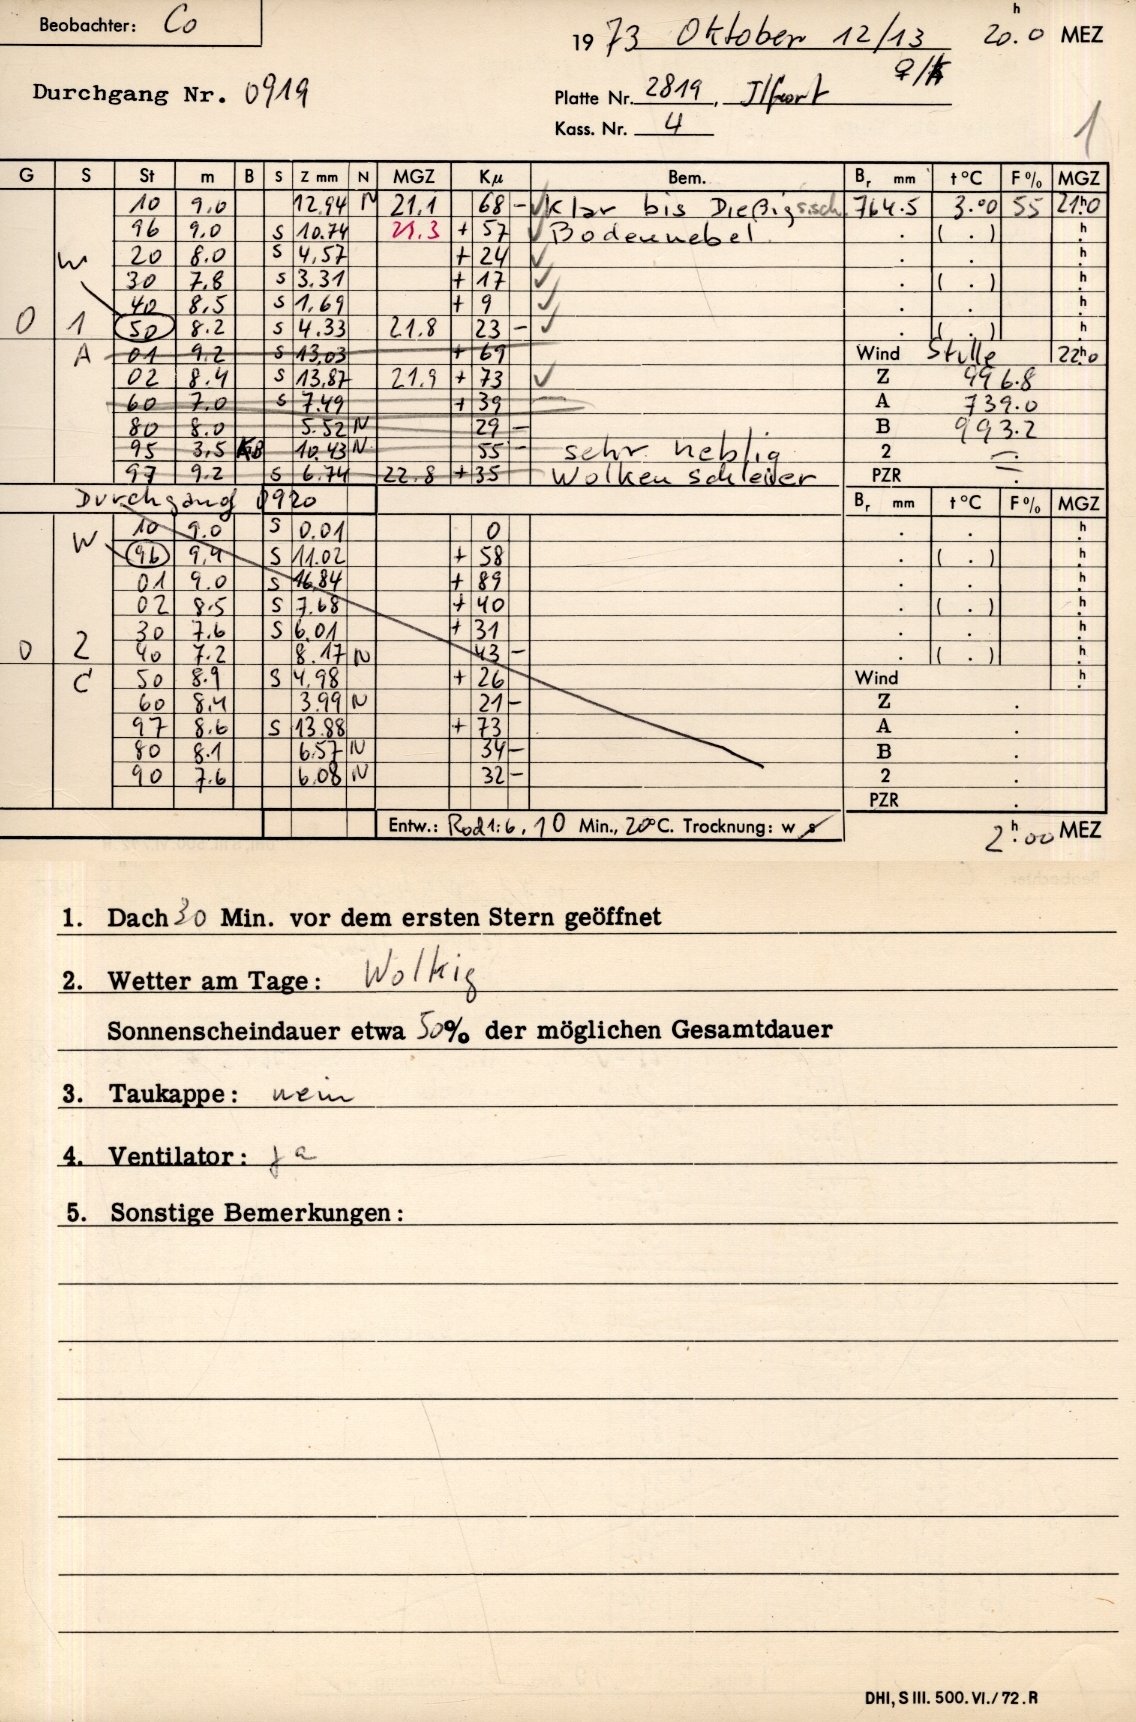 Beobachter: Co
1973 Oktober 12/13 20.0 h MEZ
Durchgang Nr. 0919
♀/
Platte Nr. 2819,
Kass. Nr. 4
1
G S St m B S Z mm N MGZ Kµ Bem. Br mm t°C F% MGZ
10 9.0 12.94 N 21.1 68 - Klar bis 764.5 3.00 55 21h0
96 9.0 S 10.74 21.3 + 57 Bodennebel . ( . ) h
W 20 8.0 S 4.57 + 24 . . h
30 7.8 S 3.31 + 17 . ( . ) h
40 8.5 S 1.69 + 9 . . h
0 1 50 8.2 S 4.33 21.8 23 - . ( . ) h
A 01 9.2 S 13.03 + 69 Wind Stille 22h0
02 8.4 S 13.87 21.9 + 73 Z 996.8
60 7.0 S 7.49 + 39 A 739.0
80 8.0 5.52 N 29 - B 993.2
95 3,5 KB 10.43 N 55 - sehr neblig 2 .
97 9.2 S 6.74 22.8 + 35 Wolkenschleier PZR
Durchgang 0920 Br mm t°C F% MGZ
10 9.0 S 0.01 0 . . h
W 96 9,4 S 11.02 + 58 . ( . ) h
01 9.0 S 16.84 + 89 . . h
02 8.5 S 7.68 + 40 . ( . ) h
30 7.6 S 6.01 + 31 . . h
0 2 40 7.2 8.17 N 43 - . ( . ) h
C 50 8.9 S 4.98 + 26 Wind h
60 8.4 3.99 N 21 - Z .
97 8.6 S 13.88 + 73 A .
80 8.1 6.57 N 34 - B .
90 7.6 6.08 N 32 - 2 .
PZR .
Entw.: Rod 1:6, 10 Min., 20°C. Trocknung: w s
2h.00 MEZ
1. Dach 30 Min. vor dem ersten Stern geöffnet
2. Wetter am Tage: Wolkig
Sonnenscheindauer etwa 50% der möglichen Gesamtdauer
3. Taukappe: nein
4. Ventilator: ja
5. Sonstige Bemerkungen:
DHI, S III. 500. VI./72. R